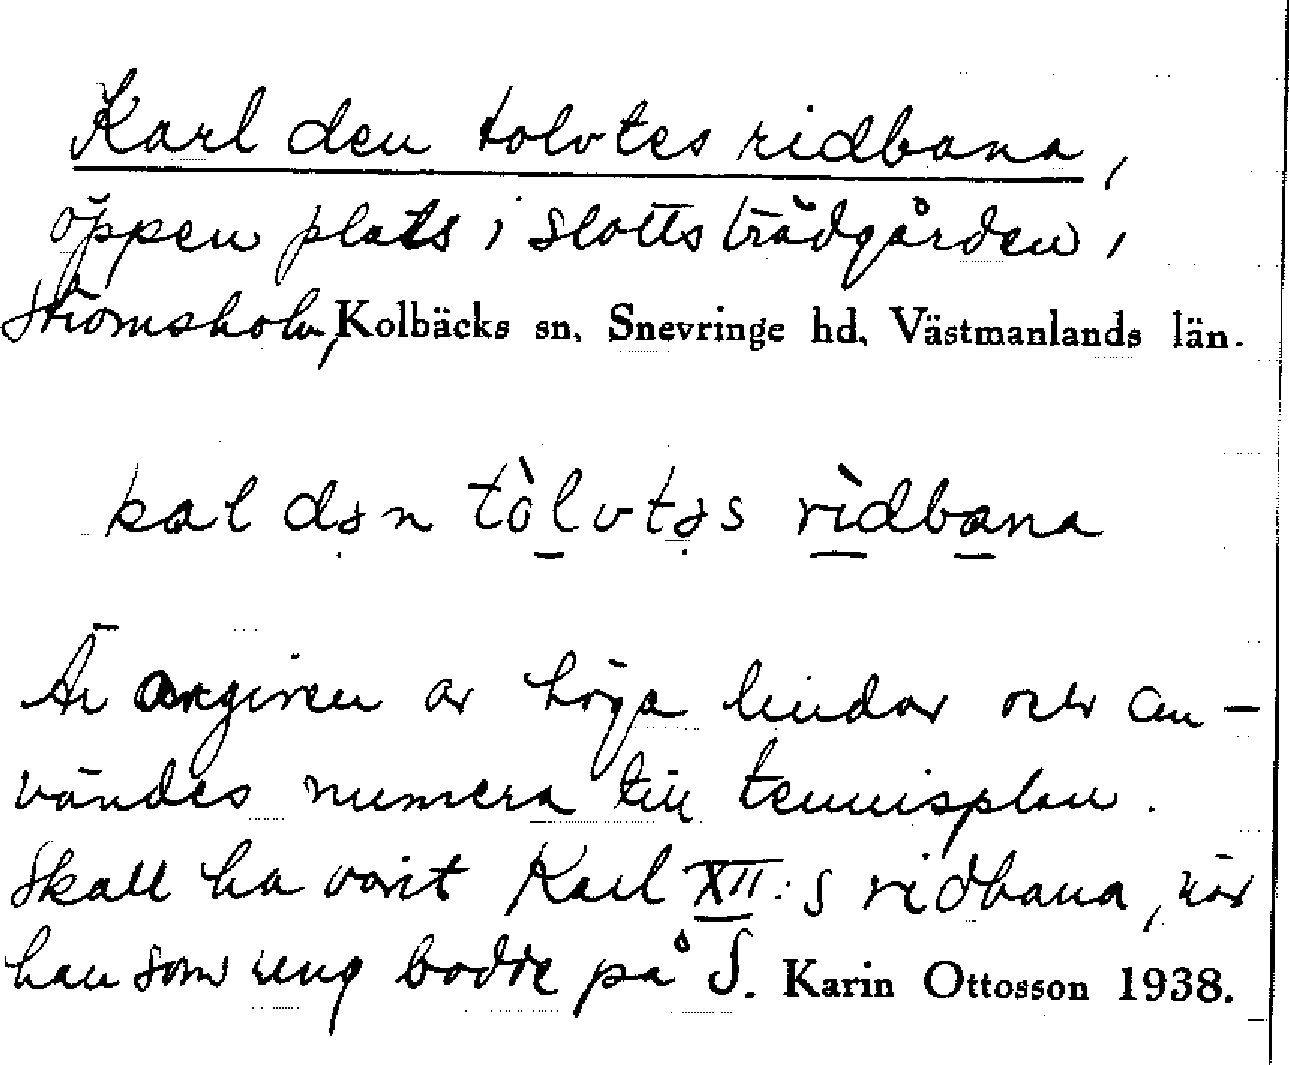 Karl den tolvtes ridbana,
öppen plats i slottsträdgården,
Strömsholm, Kolbäcks sn, Snevringe hd, Västmanlands län.
kal dən tòlvtəs rìdbana
Är omgiven av höga lindar och an-
vändes numera till tennisplan.
Skall ha varit Karl XII:s ridbana, när
han som ung bodde på S. Karin Ottosson 1938.